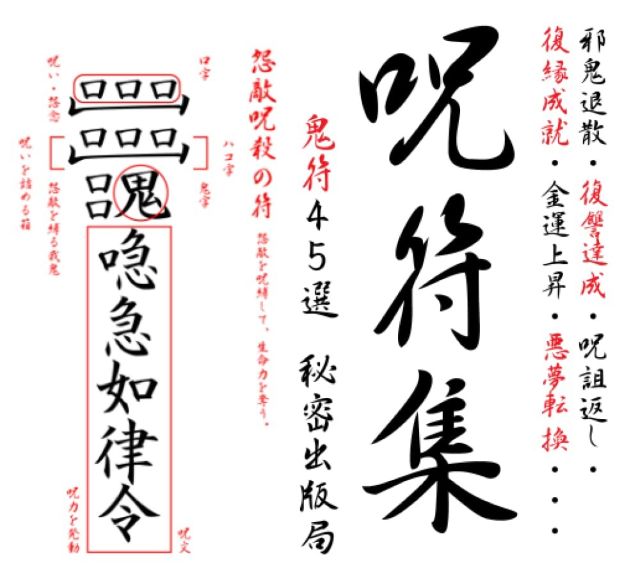 邪鬼退散・復讐達成・呪詛返し・
復縁成就・金運上昇・悪夢転換・・・
呪符集
鬼符45選 秘密出版局
怨敵呪殺の符
怨敵を呪縛して、生命力を奪う。
口字
ハコ字
鬼字
呪文
口口口
口口口
呂鬼
喼急如律令
呪い・怨念
呪いを詰める箱
怨敵を縛る我鬼
呪力を発動